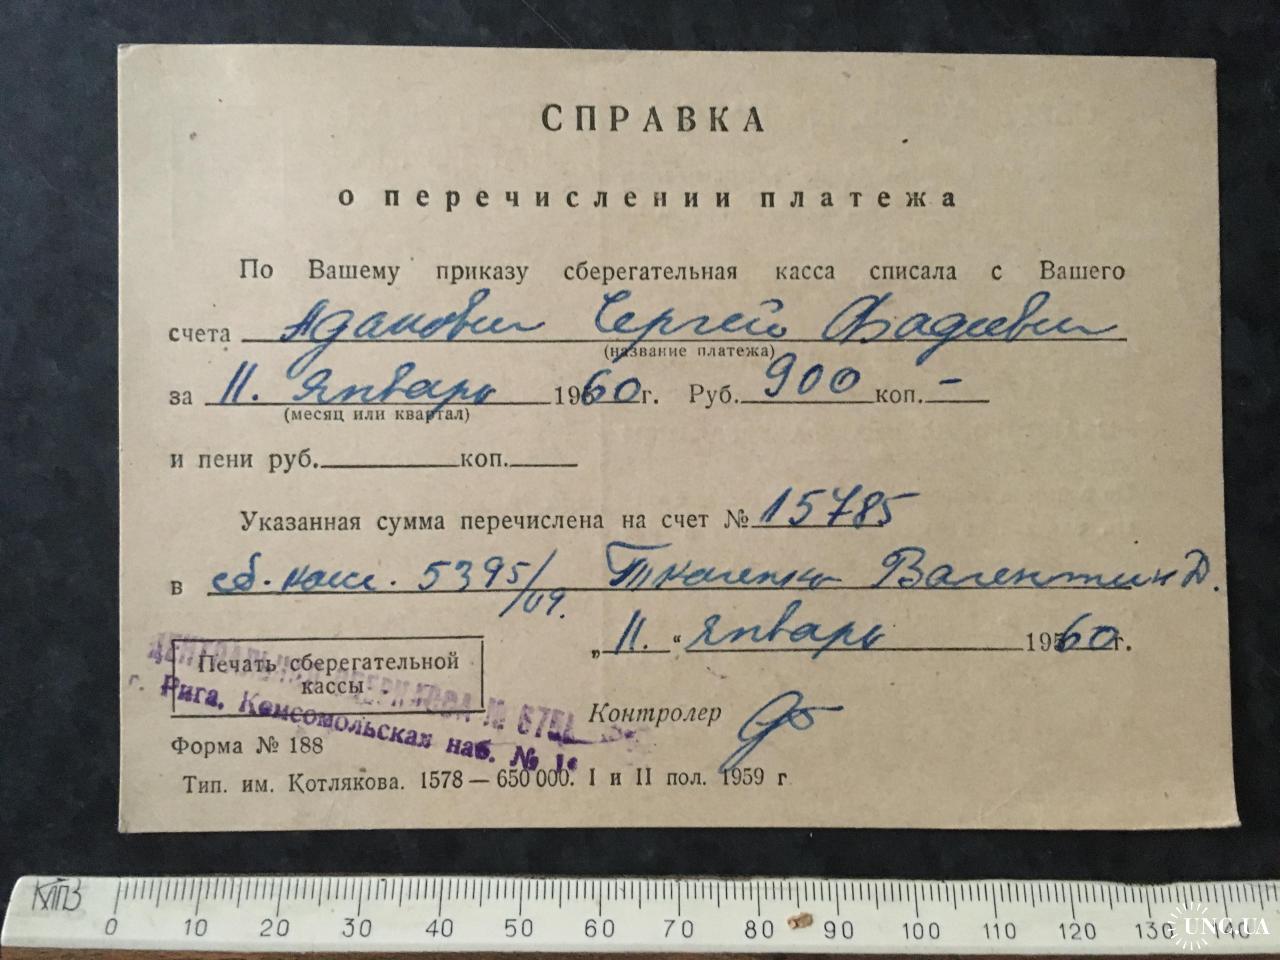 СПРАВКА
о перечислении платежа
По Вашему приказу сберегательная касса списала с Вашего
счета Адамович Сергей Фадеевич
(название платежа)
за 11. Январь 19660г. Руб. 900 коп. –
(месяц или квартал)
и пени руб. коп.
Указанная сумма перечислена на счет № 15785
в сб. касс. 5395/09. Ткаченко Валентин Д.
„11.“ Январь 19560г.
Печать сберегательной
кассы
ЦЕНТРАЛЬНАЯ СБЕРКАССА №
г. Рига, Комсомольская наб. № 1
Контролер
Форма № 188
Тип. им. Котлякова. 1578 — 650 000. I и II пол. 1959 г
КТПЗ
0 10 20 30 40 50 60 70 80 90 100 110 120 130 140
UNC.UA